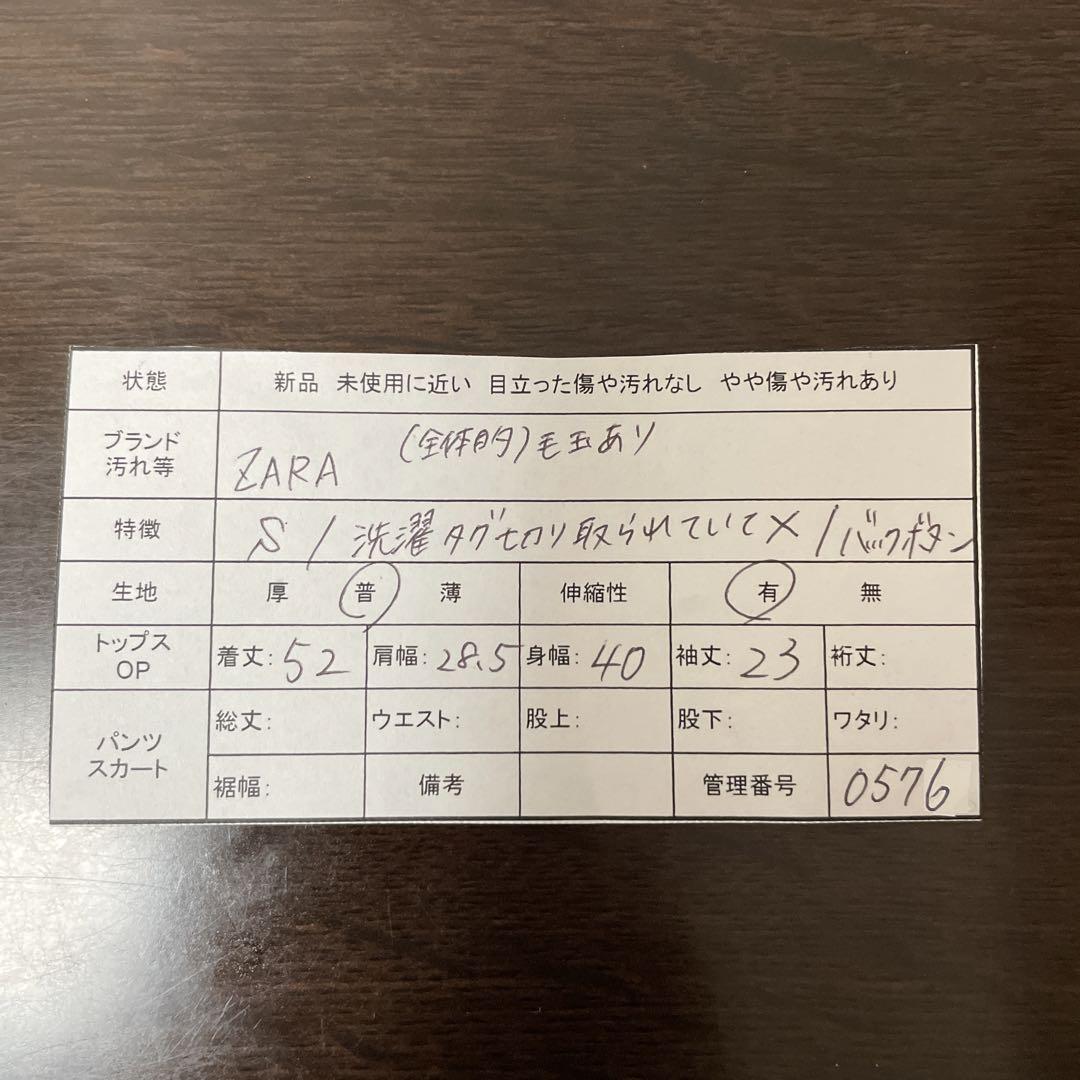 状態 新品 未使用に近い 目立った傷や汚れなし やや傷や汚れあり
ブランド
汚れ等
(全体的)毛玉あり
ZARA
特徴 S / 洗濯タグ切り取られていて× / バックボタン
生地 厚 普 薄 伸縮性 有 無
トップス
OP
着丈:52 肩幅:28.5 身幅:40 袖丈:23 裄丈:
パンツ
スカート
総丈: ウエスト: 股上: 股下: ワタリ:
裾幅: 備考 管理番号 0576